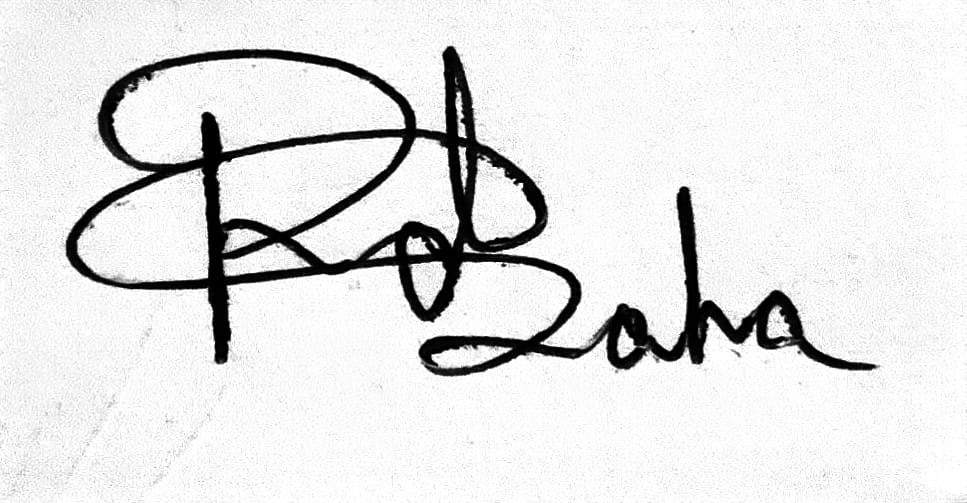 Rob
Zaha